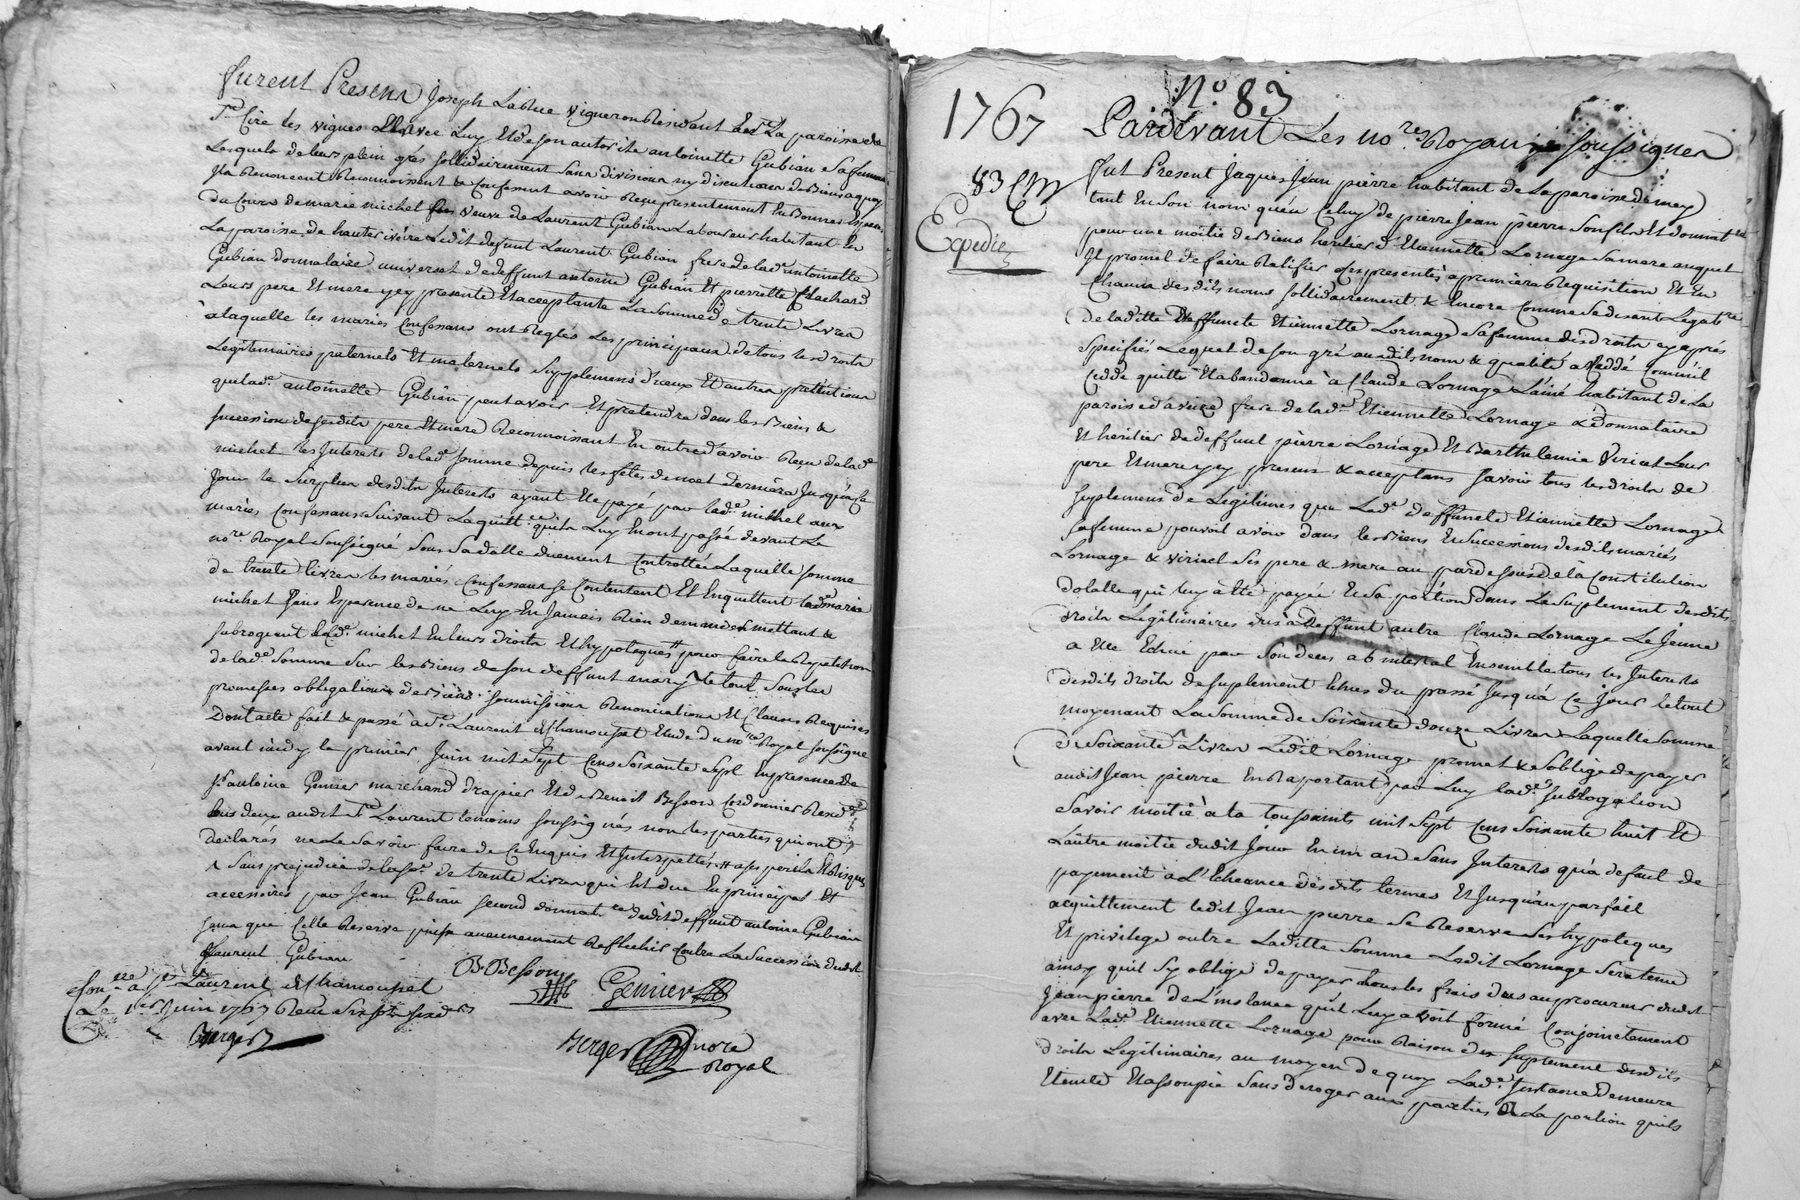 furent Presens Joseph Labbue vigneron Residant en la paroisse de
St Cire les vignes & avec luy et de son autorité antoinette Gubian sa femme
Lesquels de leurs plein grés sollidairement sans division ny discution de Biens a quoy
Ils Renoncent Reconnoissent & Confessent avoir Reçu presentement En Bonnes Especes
Du Cours de marie michel veuve de Laurent Gubian Laboureur habitant En
La paroisse de hauterivoire Ledit deffunt Laurent Gubian frere de lade antoinette
Gubian donnataire universel de deffunt antoine Gubian Et pierrette flachard
Leurs pere Et mere icy presente Et acceptante La Somme de trente Livres
à laquelle les mariés Confessans ont Reglés Les principaux de tous les droits
Legitimaires paternels Et maternels Supplemens d'iceux Et autres prettentions
que lade antoinette Gubian peut avoir Et pretendre dans les Biens &
succession de sesdits pere Et mere Reconnoissant En outre d'avoir Reçu de lade
michel les Interets de lade somme depuis les fêtes de noel derniere Jusqu'à ce
Jour le Surplus desdits Interets ayant Eté payé par lade michel aux
mariés Confessans Suivant La quittce qu'ils Luy En ont passé devant Le
nore Royal Soussigné Sous Sa datte duement Controllée Laquelle somme
de trente livres les mariés Confessans se Contentent Et Enquittent lade marie
michel sans Esperance de ne Luy En Jamais Rien demander mettant &
subrogeant lade michel En leurs droits Et hypoteques pour faire la Repetition
de lade Somme Sur les Biens de son deffunt mary le tout Sous les
promesses obligations de Biens Soumissions Renonciations Et Clauses Requises
Dont acte fait & passé à St Laurent de Chamousset Etude du nore Royal soussigné
avant midy le premier Juin mil Sept Cens Soixante Sept En presence de
sr antoine Genier marchand drapier Et de Benoit Besson Cordonnier Residts
tous deux audit St Laurent temoins soussignés non les parties qui ont
declarés ne le Savoir faire de Ce Enquis Et Interpellés
sans prejudice de la se de trente Livres qui Est due En principal Et
accessoires par Jean Gubian second donnatre dudit deffunt antoine Gubian
sans que Cette Reserve puisse aucunement Reflechir Contre La Succession dudit
Laurent Gubian
B. Besson Genier
Conlé à St Laurent de Chamousset
Le 1er Juin 1767 Reçu Six sols six drs
Berger
Berger nore
Royal
No. 83
1767
Pardevant Les nores Royaux soussignés
83 Cm
Expedié
fut Present Jaques Jean pierre habitant de la paroisse de mey
tant En Son nom qu'en Celuy de pierre Jean pierre Son fils Et donnatre
pour une moitié de Biens heritier d'Etiennette Lornage Sa mere auquel
Il promet de faire Ratifier Ces presentes a premiere Requisition Et En
Chacun desdits noms sollidairement & Encore Comme se disant Legatre
de laditte deffuncte Etiennette Lornage Sa femme des droits cy après
Specifiés Lequel de Son gré auxdits nom & qualité a Ceddé Comme il
Cedde quitte Et abandonne à Claude Lornage L'ainé habitant de La
paroisse d'avaize frere de lade Etiennette Lornage & donnataire
Et heritier de deffunt pierre Lornage Et Barthelemie Viricel Leur
pere Et mere icy present & acceptant Savoir tous les droits de
supplemens de Legitimes que Lade deffuncte Etiennette Lornage
sa femme pouvoit avoir dans les Biens Et successions desdits mariés
Lornage & viricel Ses pere & mere au par dessus de la Constitution
dotalle qui luy a été payée Et Sa portion dans Le Supplement desdits
droits Legitimaires dus a deffunt autre Claude Lornage Le Jeune
a Elle Echue par Son deces ab intestat Ensemble tous les Interets
desdits droits de Suplement Echus du passé Jusqu'à Ce Jour le tout
moyenant La Somme de Soixante douze Livres Laquelle Somme
De Soixante Livres Ledit Lornage promet & s'oblige de payer
audit Jean pierre En Raportant par Luy lade Subrogation
Savoir moitié à la toussaints mil Sept Cens Soixante huit Et
L'autre moitié dudit Jour En un an Sans Interets qu'à defaut de
payement à L'Echeance desdits termes Et Jusqu'au parfait
acquittement ledit Jean pierre Se Reserve Ses hypoteques
Et privilege outre Laditte Somme Ledit Lornage Sera tenu
ainsy qu'il S'y oblige de payer tous les frais dus au procureur dudit
Jean pierre de L'instance qu'il Luy avoit formé Conjointement
avec Lade Etiennette Lornage pour Raison des Suplement desdits
droits Legitimaires au moyen de quoy Lade Instance demeure
Eteinte Et assoupie Sans deroger aux parties à La portion qu'ils